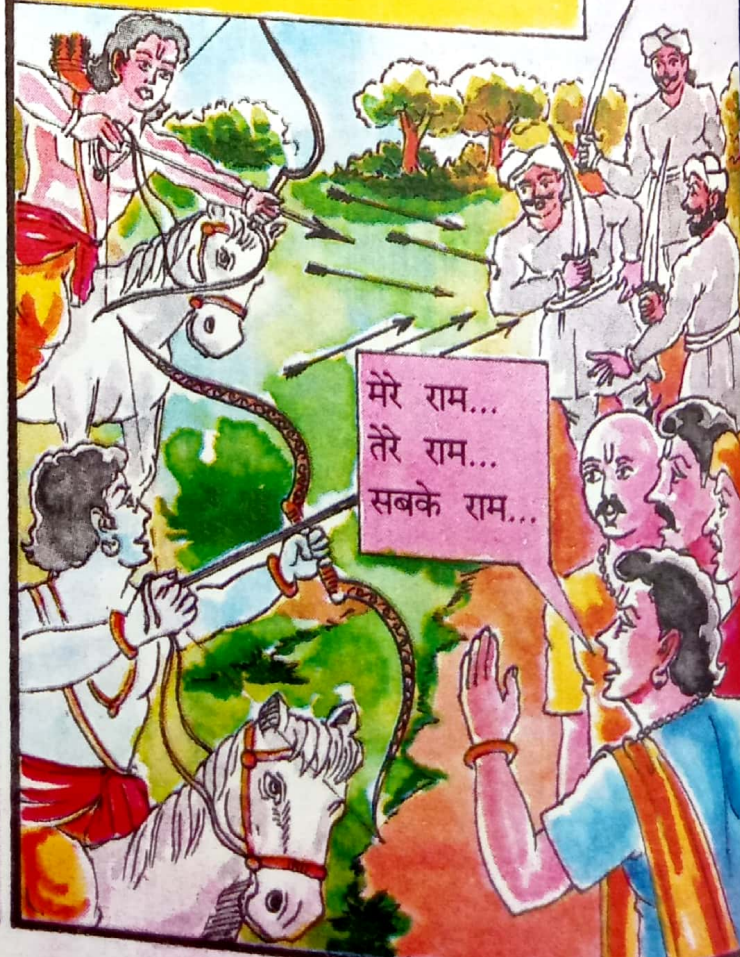 मेरे राम...
तेरे राम...
सबके राम...